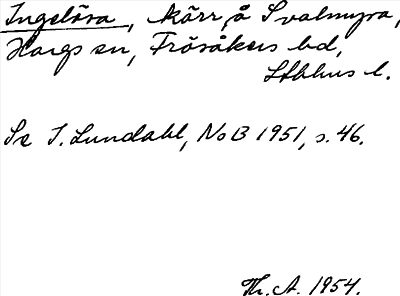 Ingelösa, kärr å Svalmyra,
Hargs sn, Frösåkers hd,
Sthlms l.
Se I. Lundahl, NoB 1951, s. 46.
Th. A. 1954.